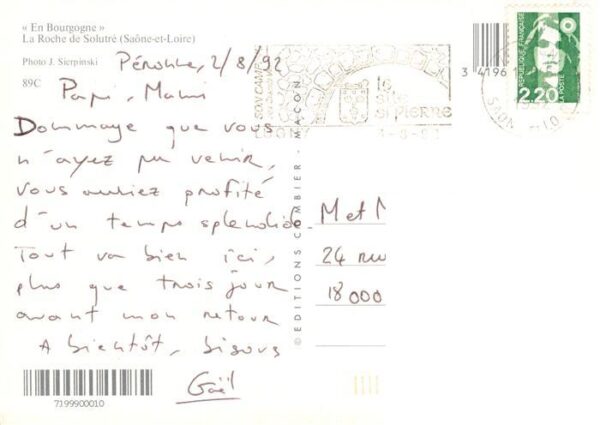 « En Bourgogne »
La Roche de Solutré (Saône-et-Loire)
Photo J. Sierpinski
89C
Péronne, 2/8/92
Papi, Mami
Dommage que vous
n'ayez pu venir,
vous auriez profité
d'un temps splendide.
Tout va bien ici,
plus que trois jour
avant mon retour
A bientôt, bisous
Gaël
7199900010
© EDITIONS COMBIER - MACON
le
site
St Pierre
3 4196
REPUBLIQUE FRANÇAISE
2,20
LA POSTE
M et M
24 rue
18000